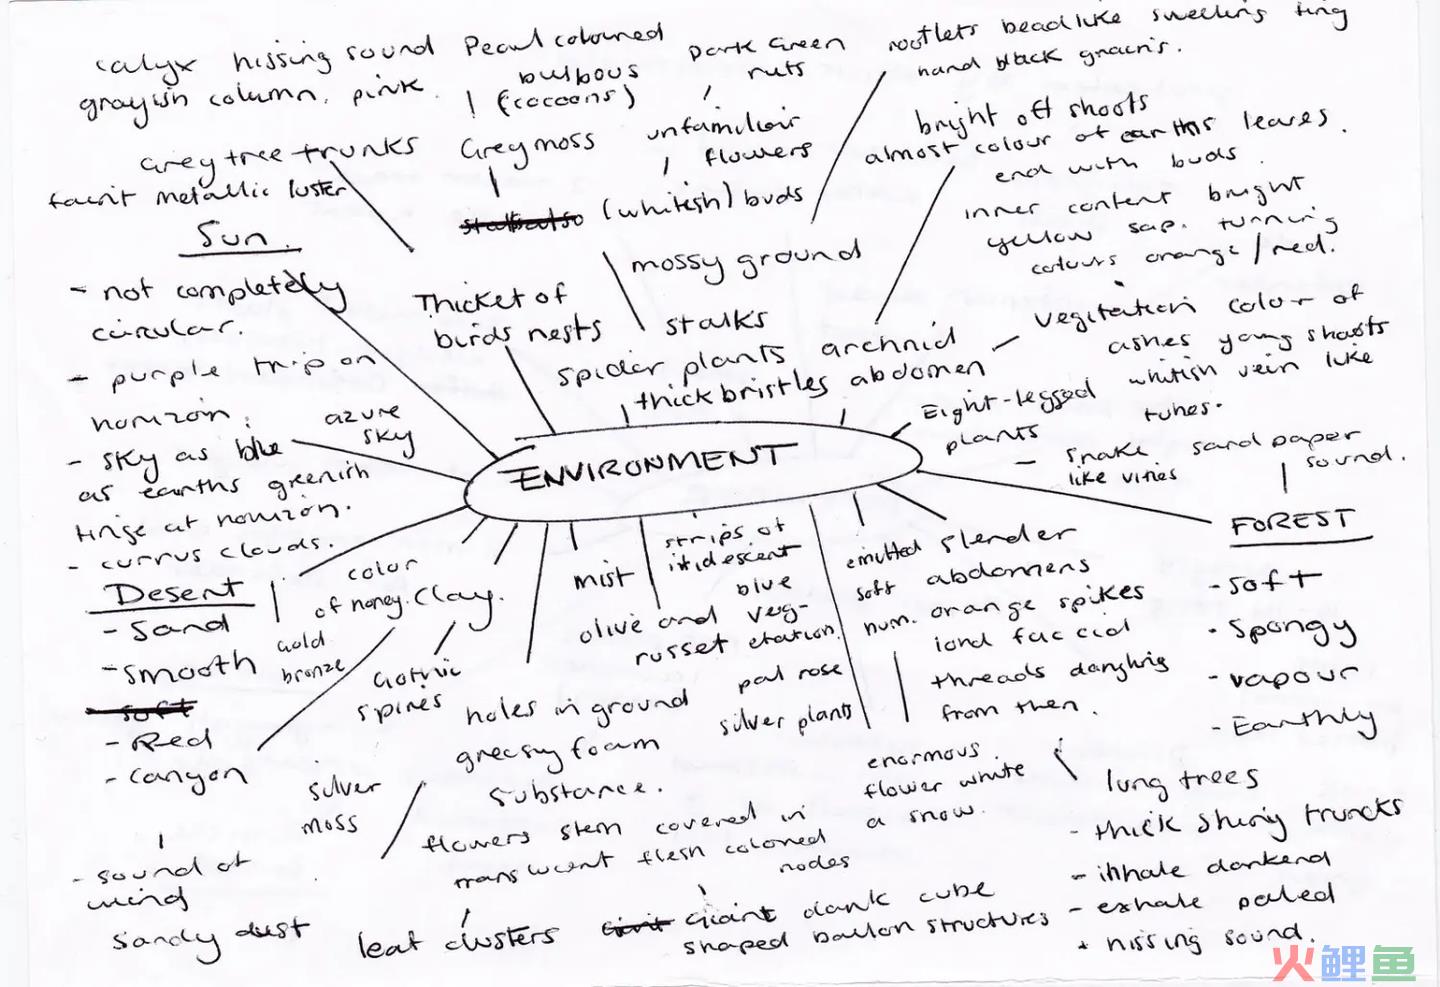 calyx hissing sound
grayish column. pink.
Pearl coloured
bulbous
(cocoons)
Dark Green
nuts
rootlets beadlike swelling
hand black grains.
Grey tree trunks
faint metallic luster
Grey moss
unfamiliar
flowers
(whitish) buds
bright off shoots
almost colour of earths leaves.
end with buds.
inner content bright
yellow sap. turning
colours orange / red.
Sun.
- not completely
circular.
- purple trip on
horizon.
- sky as blue
as earths greenish
tinge at horizon.
- currus clouds.
azure
sky
Thicket of
birds nests
mossy ground
stalks
spider plants
thick bristles
archnid
abdomen
Vegitation color of
ashes young shoots
whitish vein like
tubes.
Eight-legged
plants
- snake
like vities
sand paper
sound.
ENVIRONMENT
FOREST
- soft
- Spongy
- vapour
- Earthly
Desert
- Sand
- Smooth
- soft
- Red
- canyon
- sound of
wind
sandy dust
color
of honey.
Clay.
gold
bronze
Gothic
spires
silver
moss
mist
strips of
iridescent
blue
olive and
russet
veg-
etation.
holes in ground
greasy foam
substance.
pal rose
silver plants
emitted
soft
hum.
slender
abdomens
orange spikes
and faccid
threads dangling
from then.
enormous
flower white
a snow.
flowers stem covered in
translucent flesh coloured
nodes
leaf clusters
Giant dark cube
shaped ballon structures
lung trees
- thick shiny truncks
- inhale darkend
- exhale paled
* hissing sound.
火鲤鱼